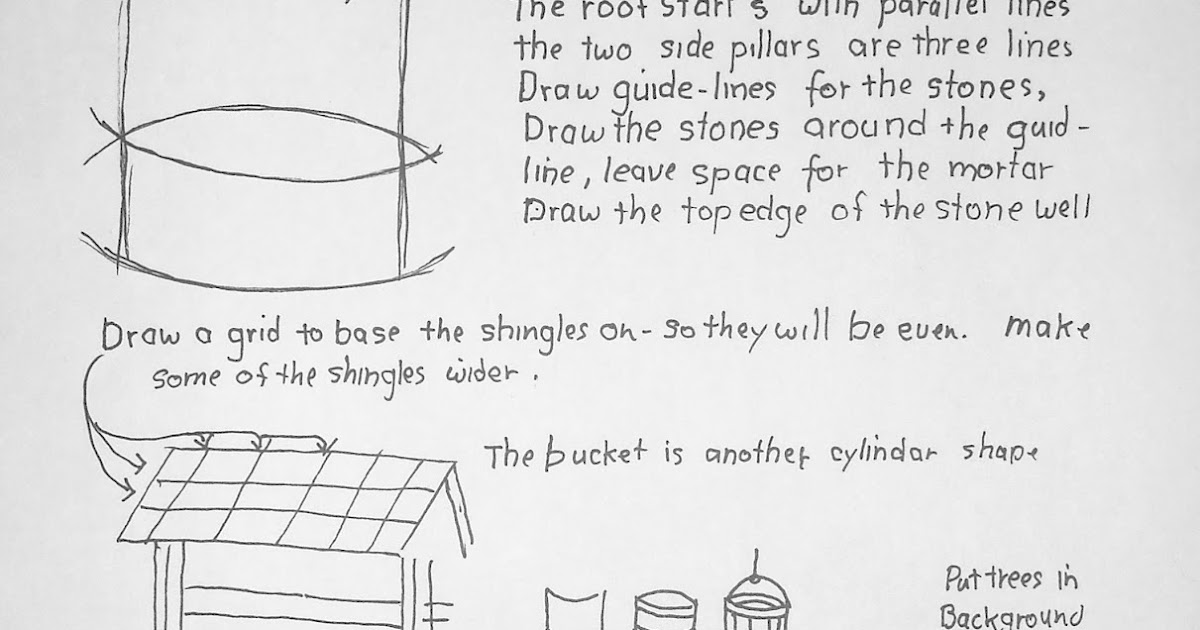 The roof start's with parallel lines
the two side pillars are three lines
Draw guide-lines for the stones,
Draw the stones around the guid-
line, leave space for the mortar
Draw the top edge of the stone well
Draw a grid to base the shingles on - so they will be even. make
some of the shingles wider.
The bucket is another cylindar shape
Put trees in
Background